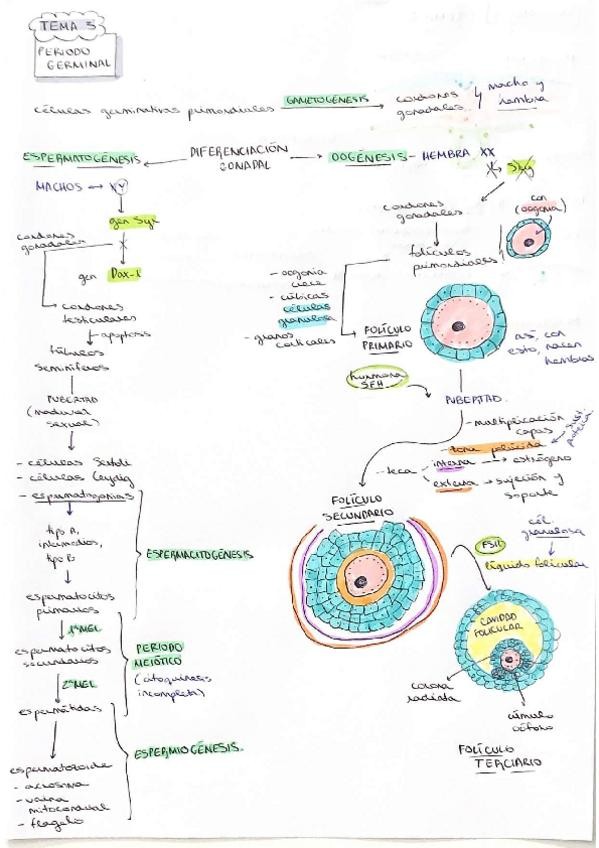 TEMA 3
PERIODO
GERMINAL
células germinativas primordiales
GAMETOGÉNESIS
cordones
gonadales
macho y
hembra
ESPERMATOGÉNESIS
DIFERENCIACIÓN
GONADAL
OOGÉNESIS - HEMBRA XX
MACHOS → XY
gen
cordones
gonadales
gen Dax-1
cordones
testiculares
apoptosis
túbulos
seminíferos
PUBERTAD
(madurez
sexual)
- células Sertoli
- células Leydig
- espermatogonias
tipo A,
intermedios,
tipo B
ESPERMACITOGÉNESIS
espermatocitos
primarios
1ª MEI.
espermatocitos
secundarios
2ª MEI.
espermátidas
PERIODO
MEIÓTICO
(citoquinesis
incompleta)
ESPERMIOGÉNESIS.
espermatozoide
- acrosoma
- vaina
mitocondrial
- flagelo
cordones
gonadales
con
(oogonia)
folículos
primordiales
- oogonia
crece
- cúbicas
células
granulosa
- granos
corticales
FOLÍCULO
PRIMARIO
así, con
esto, nacen
hembras
hormona
PUBERTAD.
- multiplicación
capas
- zona pelúcida
- teca
interna → estrógeno
externa → sujeción y
soporte
FOLÍCULO
SECUNDARIO
cél.
granulosa
FSH
líquido folicular
CAVIDAD
FOLICULAR
corona
radiata
cúmulo
oóforo
FOLÍCULO
TERCIARIO